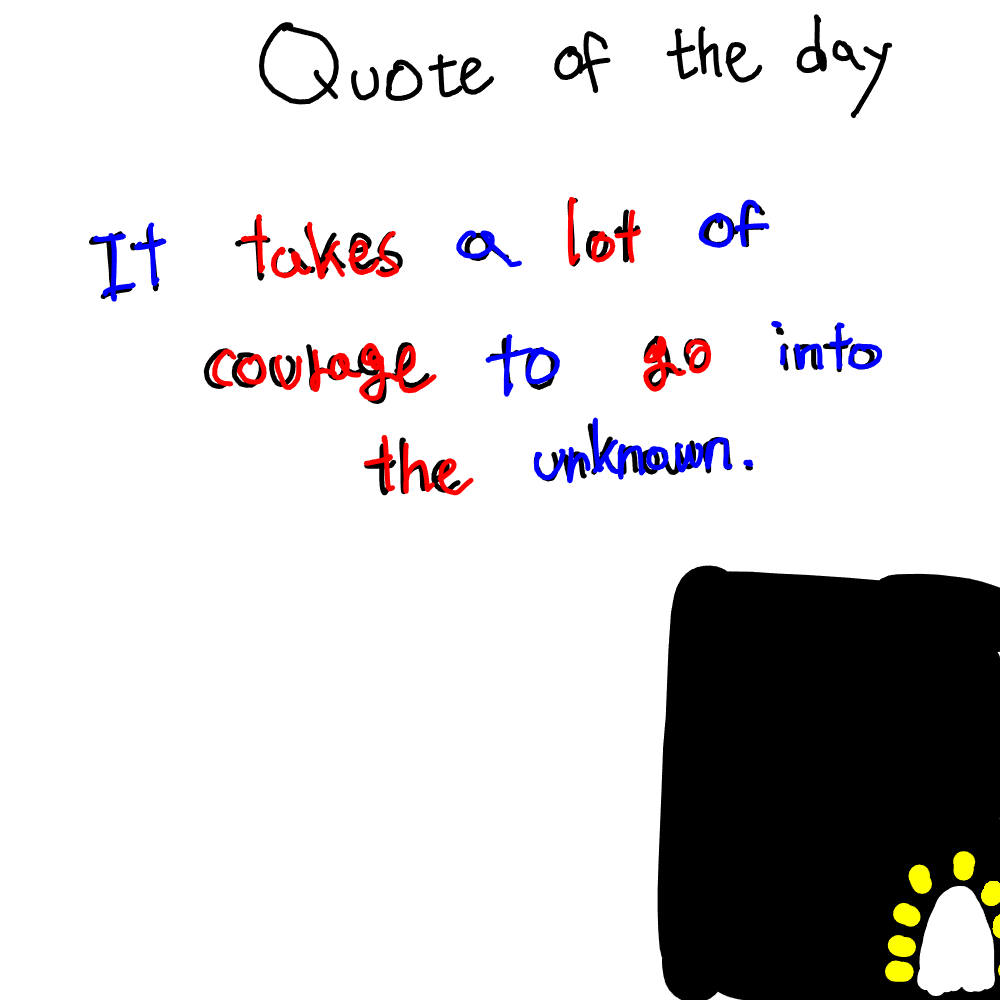 Quote of the day
It takes a lot of
courage to go into
the unknown.